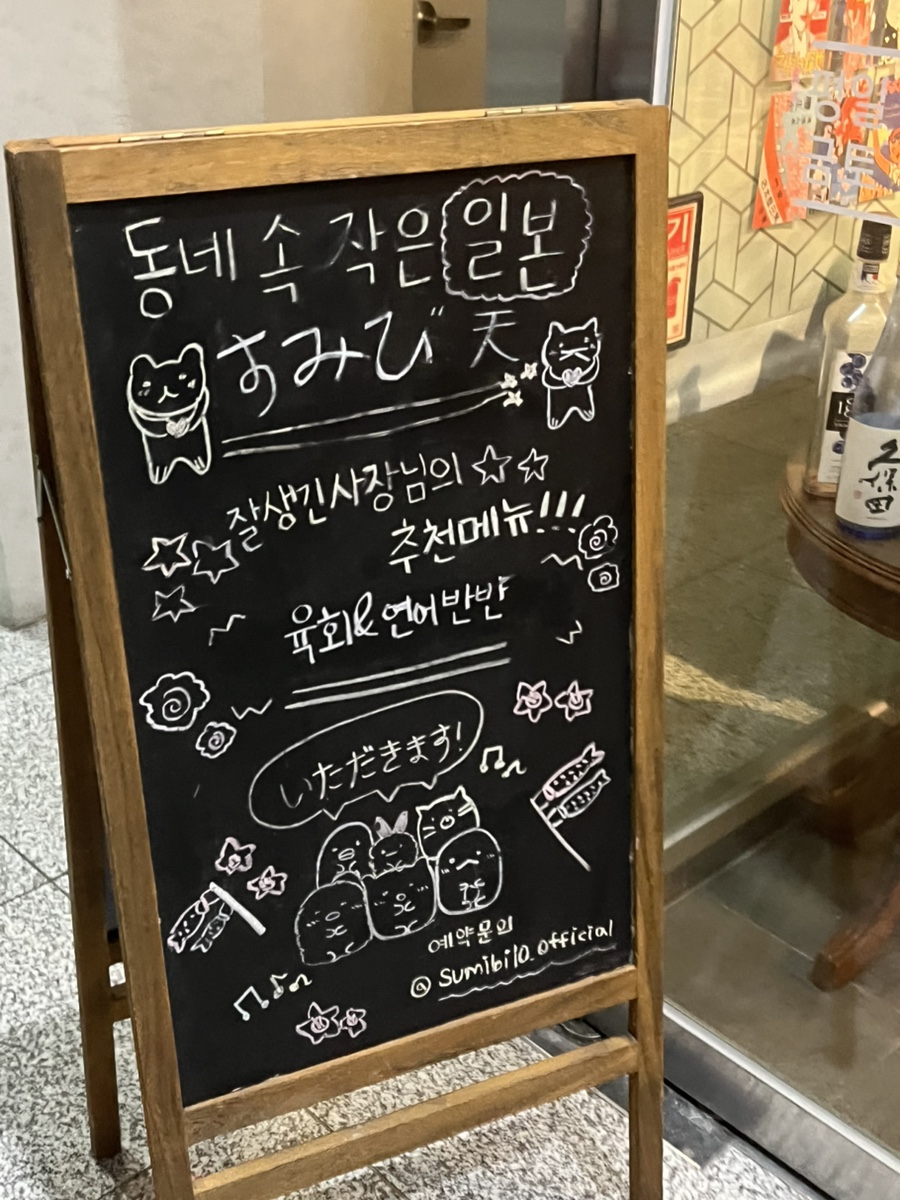 동네 속 작은 일본
すみび 天
잘생긴사장님의
추천메뉴!!!
육회&연어반반
いただきます!
예약문의
@ sumibi10_official
久保田